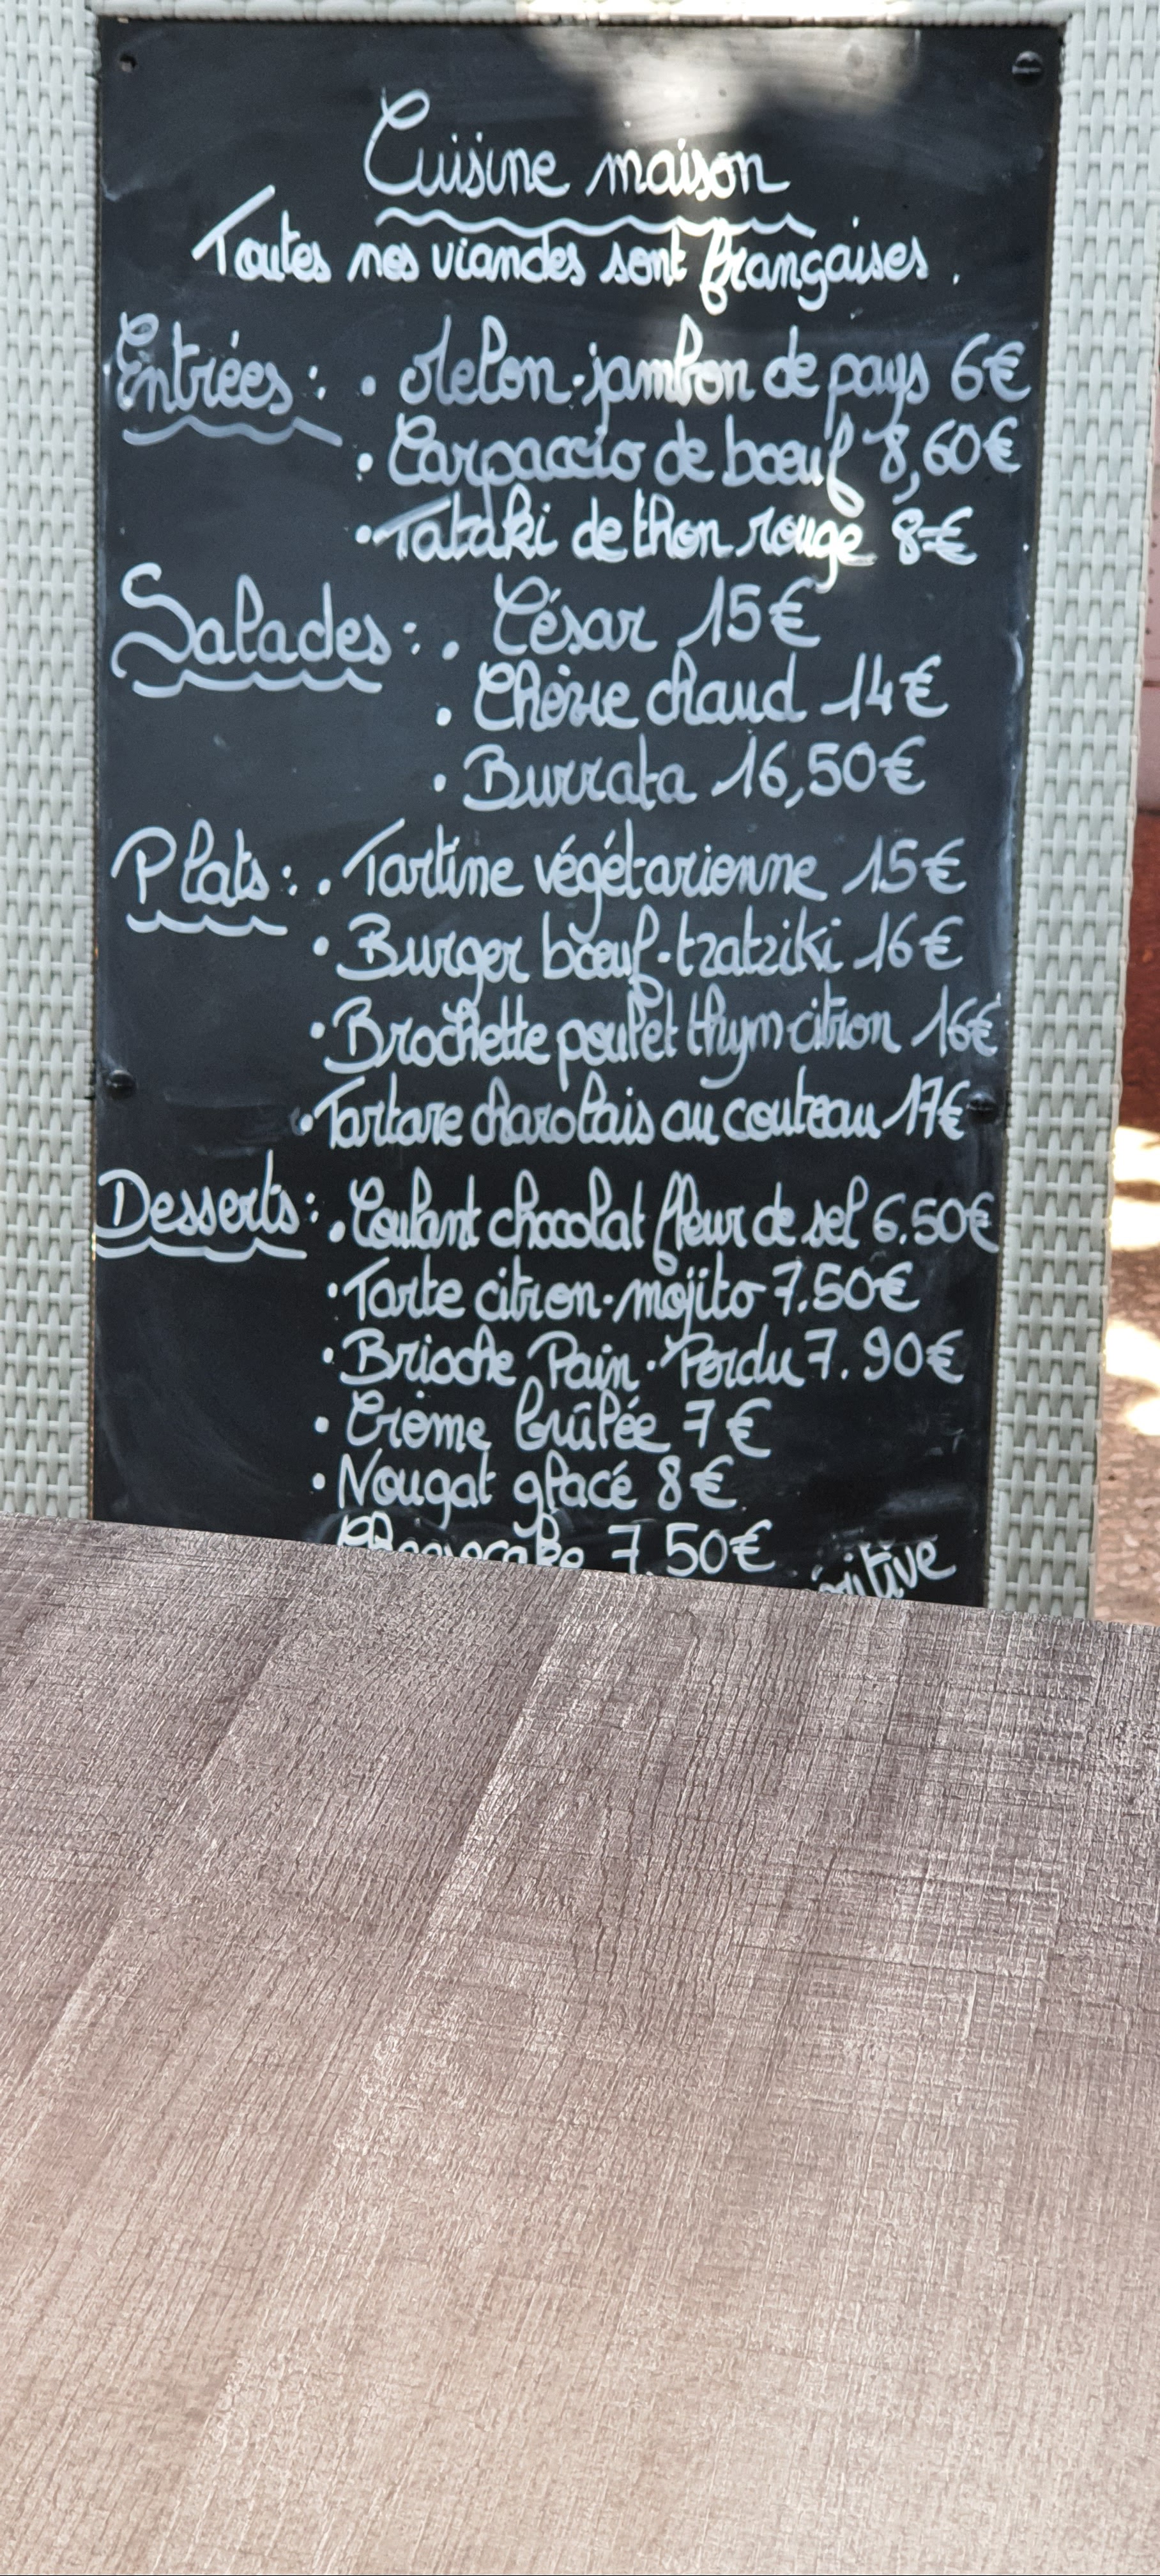 Cuisine maison
Toutes nos viandes sont françaises.
Entrées : • Melon-jambon de pays 6€
• Carpaccio de bœuf 8,60€
• Tataki de thon rouge 8€
Salades : • César 15€
• Chèvre chaud 14€
• Burrata 16,50€
Plats : • Tartine végétarienne 15€
• Burger bœuf-tzatziki 16€
• Brochette poulet thym-citron 16€
• Tartare charolais au couteau 17€
Desserts : • Coulant chocolat fleur de sel 6.50€
• Tarte citron-mojito 7.50€
• Brioche Pain-Perdu 7.90€
• Crème brûlée 7€
• Nougat glacé 8€
Cheesecake 7.50€